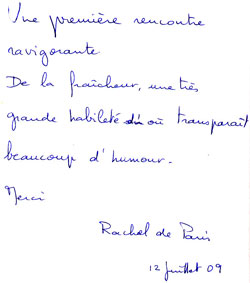 Une première rencontre
ravigorante
De la fraîcheur, une très
grande habileté où transparaît
beaucoup d'humour.
Merci
Rachel de Paris
12 Juillet 09